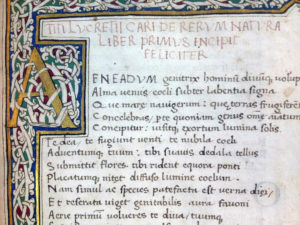 TITI LUCRETII CARI DE RERUM NATURA
LIBER PRIMUS INCIPIT
FELICITER
AENEADUM genitrix hominũ divũq, volup
Alma venus coeli subter labentia signa
Que mare navigerum: que terras frugifere
Concelebras: per te quoniam genus omne
Concipitur: exortum lumina solis
Te dea: te fugiunt venti te nubila coeli
Adventumq, tuum: tibi suavis dedala tellus
Summittit flores tibi rident equora ponti
Placatumq, nitet diffuso lumine coelum
Nam simul ac species patefacta est verna diei
Et reserata viget genitabilis aura favoni
Aerie primum volucres te diva, tuumq,